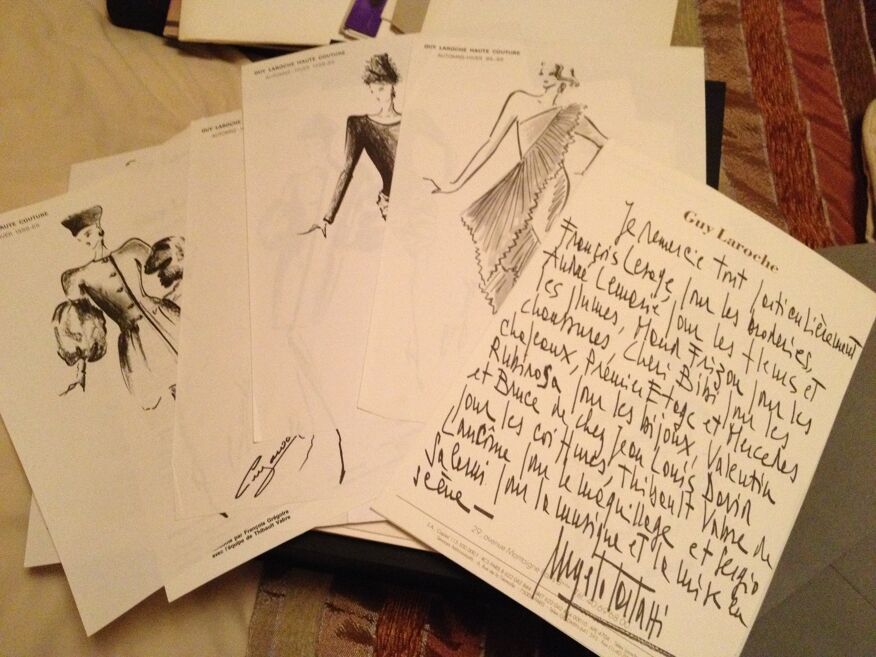 GUY LAROCHE HAUTE COUTURE
AUTOMNE-HIVER 1988-89
GUY LAROCHE HAUTE COUTURE
AUTOMNE-HIVER 88-89
GUY LAROCHE HAU
AUTOMNE-H
HAUTE COUTURE
HIVER 1988-89
par François Grégoire
avec l'équipe de Thibault Vabre
Guy Laroche
Je remercie tout particulièrement
François Lesage, pour les broderies,
André Lemarié pour les fleurs et
les plumes, Maud Frizon pour les
chaussures, Chéri Bibi pour les
chapeaux, Premier Etage et Mercedes
Rubirosa pour les bijoux, Valentin
et Bruce de chez Jean Louis David
pour les coiffures, Thibault Vabre de
Lancôme pour le maquillage et Sergio
Salerni pour la musique et la mise en
scène_
29, avenue Montaigne